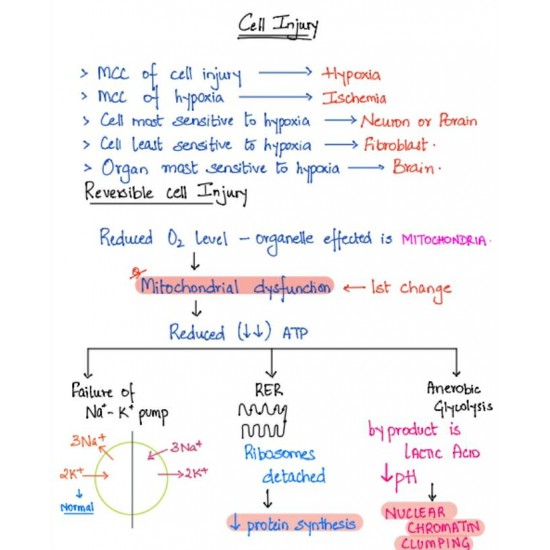 Cell Injury
> MCC of cell injury → Hypoxia
> MCC of hypoxia → Ischemia
> Cell most sensitive to hypoxia → Neuron or Porain
> Cell least sensitive to hypoxia → Fibroblast.
> Organ most sensitive to hypoxia → Brain.
Reversible cell Injury
Reduced O2 level – organelle effected is MITOCHONDRIA.
↓
Mitochondrial dysfunction ← 1st change
↓
Reduced (↓↓) ATP
Failure of
Na+- K+ pump
3Na+
3Na+
2K+
2K+
↓
Normal
RER
Ribosomes
detached
↓
↓ protein synthesis
Anerobic
Glycolysis
by product is
LACTIC ACID
↓pH
↓
NUCLEAR
CHROMATIN
CLUMPING